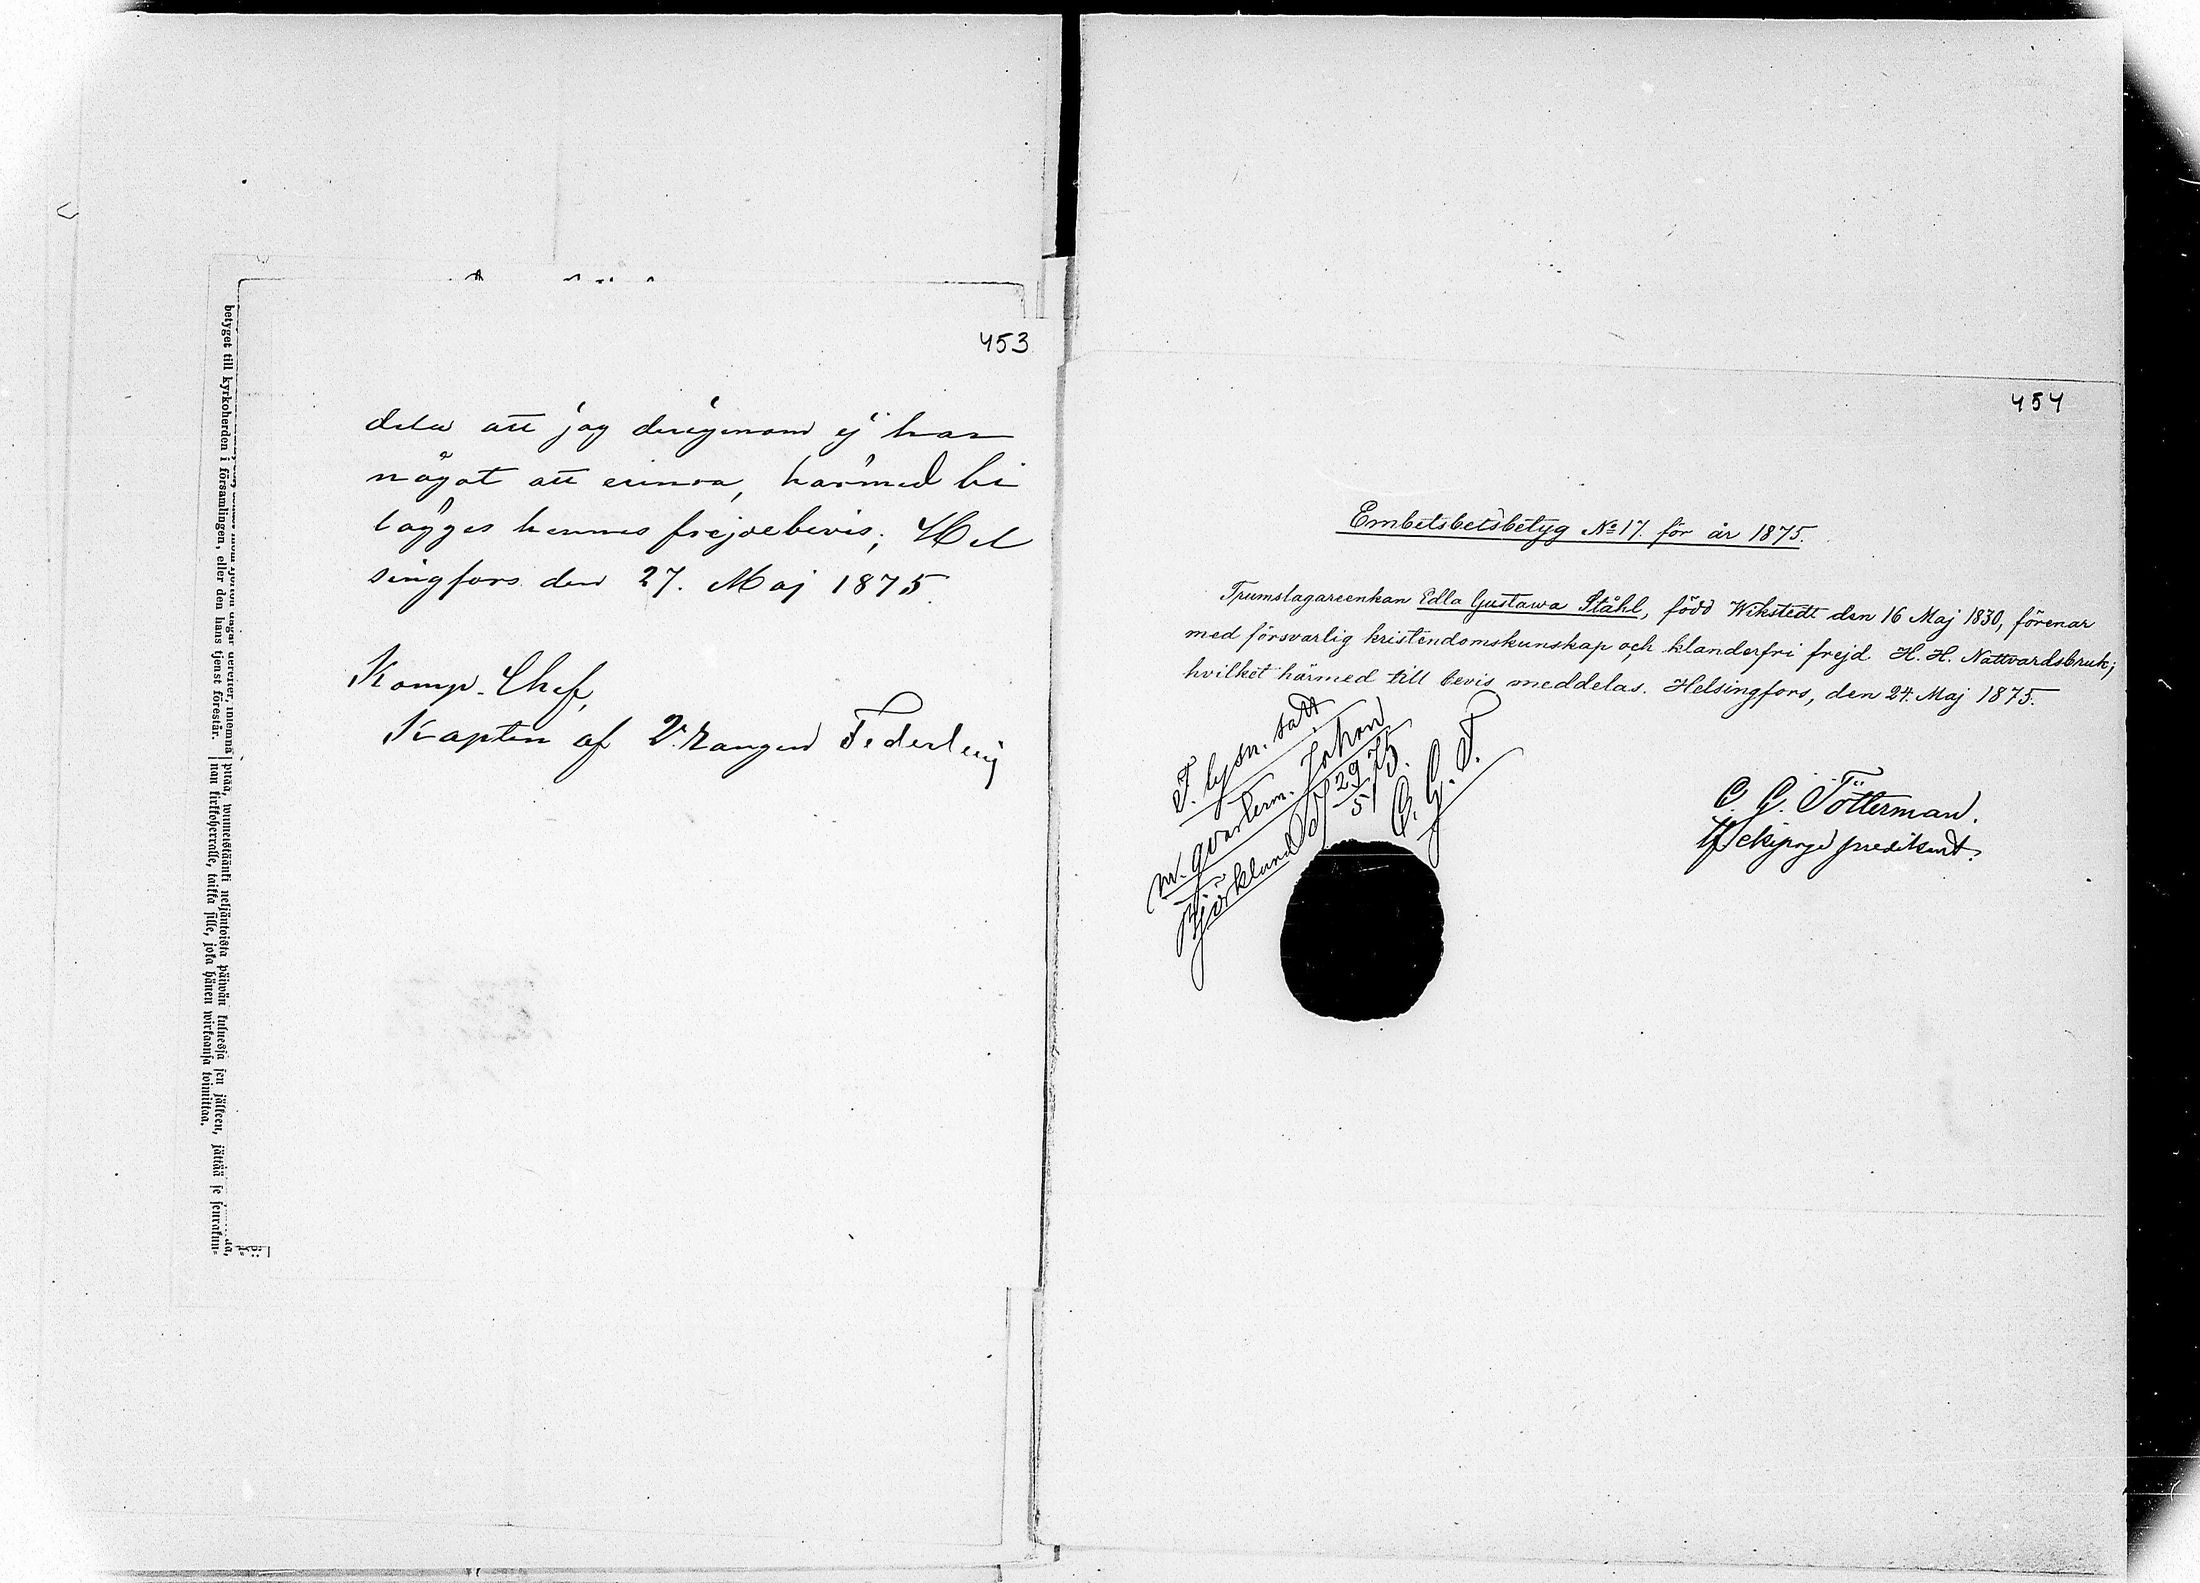 453
dela att jag derigenom ej har
något att erinra, härmed bi
lägges hennes frejdebevis; Hel
singfors den 27. Maj 1875
Komp. Chef,
Kapten af 2. rangen Federley
betyget till kyrkoherden i församlingen, eller den hans tjenst förestår.
pitää, wiimeistäänki neljäntoista päiwän kuluessa sen jälkeen, jättää se seurakun=
nan kirkkoherralle, taikka sille, joka hänen wirkaansa toimittaa.
454
Embetsbetsbetyg No 17. för år 1875.
Trumslagareenkan Edla Gustawa Ståhl, född Wikstedt den 16 Maj 1830, förenar
med försvarlig kristendomskunskap och klanderfri frejd H. H. Nattvardsbruk;
hvilket härmed till bevis meddelas. Helsingfors, den 24. Maj 1875.
C. G. Tötterman.
predikant.
T. lysn. satt
m. qvarterm. Johan
Björklund d 29/5 75.
C. G. T.